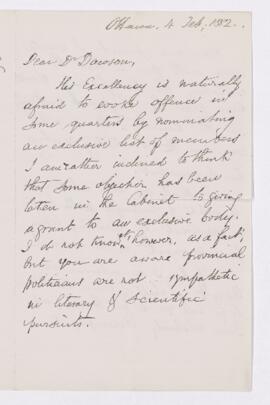 Ottawa, 4 Feb, 1882.
Dear Dr Dawson,
His Excellency is naturally
afraid to evoke offence in
some quarters by nominating
an exclusive list of members
I am rather inclined to think
that some objection has been
taken in the Cabinet to giving
a grant to an exclusive body.
I do not know it, however, as a fact,
but you are aware provincial
politicians are not sympathetic
in literary & scientific
pursuits.